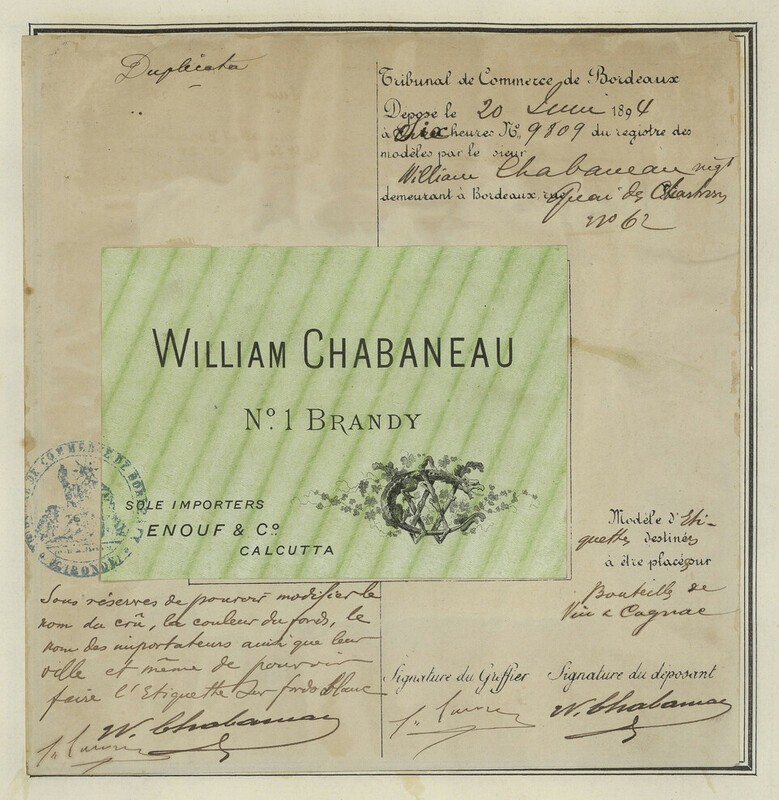 Duplicata
Tribunal de Commerce de Bordeaux
Déposé le 20 Juin 1894
à dix heures No. 9809 du registre des
modèles par le sieur
William Chabaneau négt
demeurant à Bordeaux rue Quai des Chartrons
No 62
WILLIAM CHABANEAU
No. 1 BRANDY
SOLE IMPORTERS
ENOUF & Co.
CALCUTTA
DE COMMERCE DE BORDEAUX
(GIRONDE)
Modèle d'Eti-
quettes destinées
à être placées sur
Bouteilles de
Vin & Cognac
Sous réserves de pouvoir modifier le
nom du crû, la couleur du fonds, le
nom des importateurs ainsi que leur
ville et même de pouvoir
faire l'Etiquette sur fonds blanc
W. Chabaneau
Signature du Greffier
Signature du déposant
W. Chabaneau